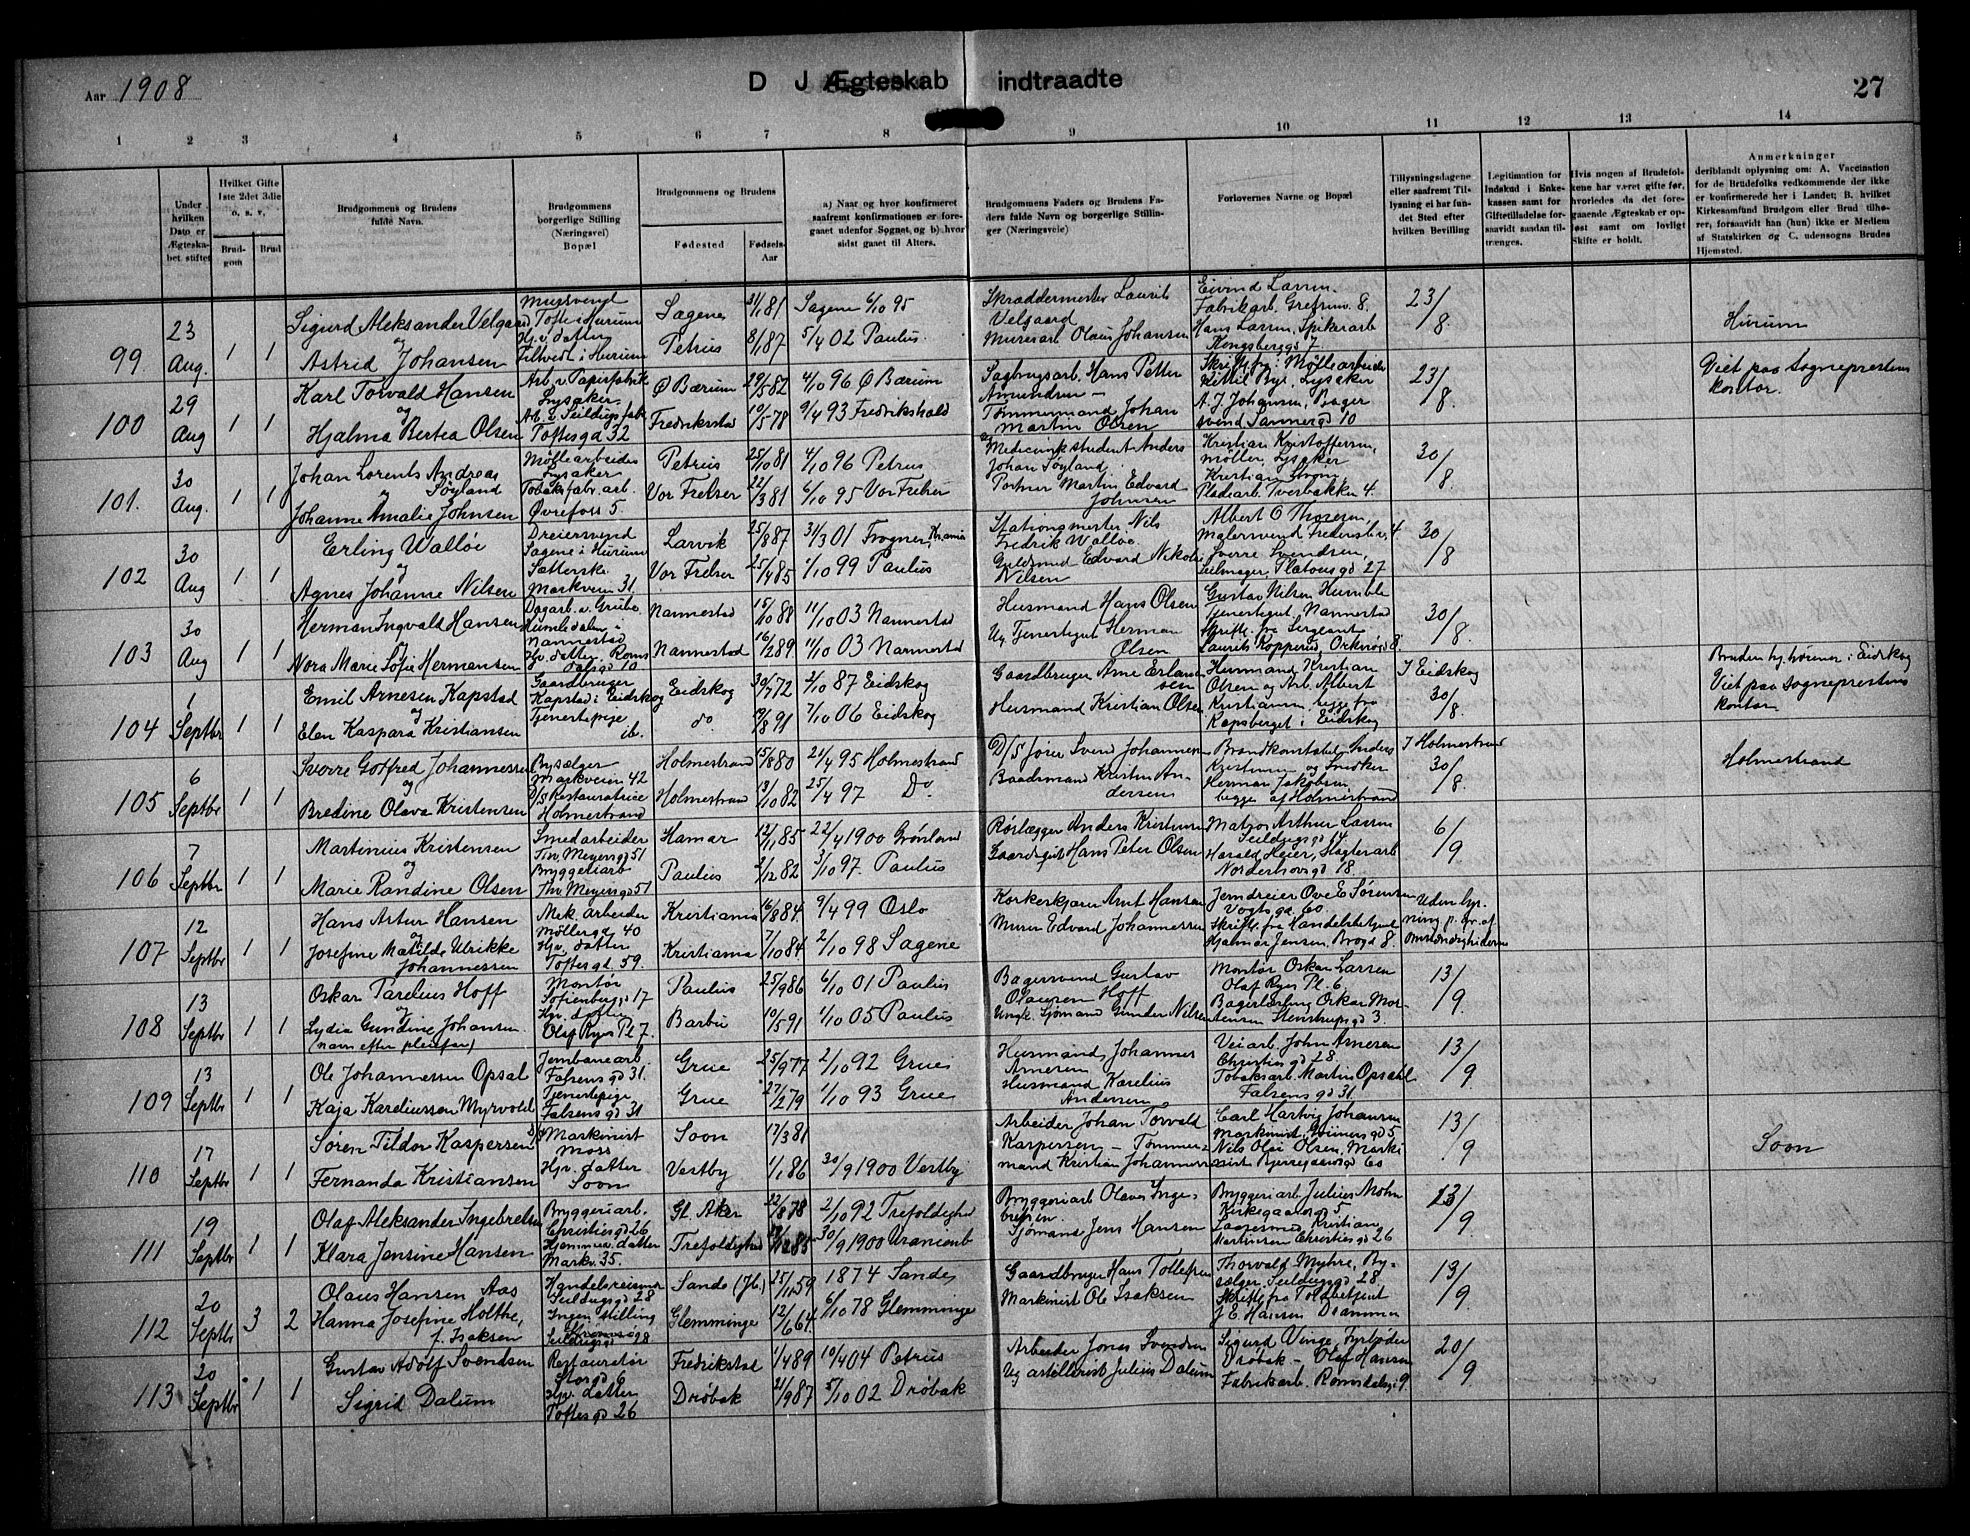 Aar 1908
D J Ægteskab indtraadte
27
1 2 3 4 5 6 7 8 9 10 11 12 13 14
Under hvilken Dato er Ægteskabet stiftet
Hvilket Gifte 1ste 2det 3die o. s. v,
Brudgom
Brud
Brudgommens og Brudens fulde Navn.
Brudgommens borgerlige Stilling (Næringsvei) Bopæl
Brudgommens og Brudens
Fødested
Fødsels-Aar
a) Naar og hvor konfirmeret saafremt konfirmationen er foregaaet udenfor Sognet, og b) hvor sidst gaaet til Alters.
Brudgommens Faders og Brudens Faders fulde Navn og borgerlige Stillinger (Næringsveie)
Forlovernes Navne og Bopæl
Tillysningsdagene eller saafremt Tillysning ei har fundet Sted efter hvilken Bevilling
Legitimation for Indskud i Enkekassen samt for Giftetilladelse forsaavidt saadan tiltrænges.
Hvis nogen af Brudefolkene har været gifte før, hvorledes da det foregaaende Ægteskab er opløst samt om lovligt Skifte er holdt.
Anmerkninger deriblandt oplysning om: A. Vaccination for de Brudefolks vedkommende der ikke er konfirmerede her i Landet; B. hvilket Kirkesamfund Brudgom eller Brud tilhører; forsaavidt han (hun) ikke er Medlem af Statskirken og C. udensogns Brudes Hjemsted.
99 23 Aug. 1 1
Sigurd Aleksander Velgaard
og
Astrid Johansen
Mursvend
Tofte i Hurum
Hj.v. datter
Filtvedt i Hurum
Sagene 31/1 81 Sagene 6/10 95
Petrus 8/1 87 5/4 02 Paulus.
Skræddermester Laurits
Velgaard
Murerarb Olaus Johansen
Eivind Larsen
Fabrikarb. Grefsenv. 8.
Hans Larsen, Spikerarb
Kongsberggd 7
23/8.
Hurum
100 29 Aug 1 1
Karl Torvald Hansen
og
Hjalma Bertea Olsen
Arb. v. Papirfabrik
Lysaker
Arb. v. Seildugsfabr
Toftesgd 32
Ø Bærum 29/5 82 4/10 96 Ø Bærum
Fredriksstad 10/5 78 9/4 93 Fredrikshald
Sagbrugsarb. Hans Petter
Amundsen –
Tømmermand Johan
Martin Olsen
Skriftl. fr: Møllearbeider
Kittil Bye, Lysaker
A. J. Johansen, Bager
svend Sannergd 10
23/8.
Viet paa Sogneprestens
kontor.
101. 30 Aug. 1 1
Johan Lorents Andreas
og Søyland
Johanne Amalie Johnsen
Møllearbeider
Lysaker
Tobaksfabr. arb.
Øvrefoss 5
Petrus 25/10 81 4/10 96 Petrus
Vor Frelser 22/3 81 6/10 95 Vor Frelser
Medicinskstudent Anders
Johan Søyland
Portner Martin Edvard
Johnsen
Kristian Kristoffersen,
møller, Lysaker
Kristian Strøm,
Pladearb. Tverbakken 4.
30/8.
102 30 Aug 1 1
Erling Walløe
og
Agnes Johanne Nilsen
Dreiersvend
Sagene i Hurum
Sætterske
Markveien 31
Larvik 25/8 87 31/3 01 Frogner, Kr.ania
Vor Frelser 25/4 85 1/10 99 Paulus
Stationsmester Nils
Fredrik Walløe.
Guldsmed Edvard Nikolai
Nilsen
Albert O Thoresen,
Malersvend, Fredensborgv. 4
Sverre Svendsen,
Seilmager, Platousgd 27
30/8
103 30 Aug 1 1
Herman Ingvald Hansen
og
Nora Marie Sofie Hermansen
Dagarb. v. Grube
Humledalen i
Nannestad
Hjv. datter Roms
dalsgd 10
Nannestad 15/10 88 11/10 03 Nannestad
Nannestad 16/2 89 11/10 03 Nannestad
Husmand Hans Olsen
Ug. Tjenestegut Herman
Olsen
Gustav Nilsen Humble
Tjenestegut, Nannestad
Skriftl. fra Sergeant
Laurits Kopperud, Orknøgd 8.
30/8.
104 1 Septbr 1 1
Emil Arnesen Kapstad
og
Elen Kaspara Kristiansen
Gaardbruger
Kapstad i Eidskog
Tjenestepige
ib.
Eidskog 30/7 72 2/10 87 Eidskog
do 19/8 91 7/10 06 Eidskog
Gaardbruger Arne Erland
sen
Husmand Kristian Olsen
Husmand Kristian
Olsen og Arb. Albert
Kristiansen, begge fra
Kopsberget i Eidskog
I Eidskog
30/8.
Bruden hj.hørende i Eidskog
Viet paa Sogneprestens
kontor
105 6 Septbr 1 1
Sverre Gotfred Johannessen
og
Bredine Olava Kristensen
Bysælger
Markveien 42
D/S Restauratrice
Holmestrand
Holmestrand 15/8 80 21/4 95 Holmestrand
Holmestrand 13/10 82 25/4 97 Do.
D/S fører Svend Johannesen
Baadsmand Kristen An-
dersen
Brandkonstabel Anders
Kristensen og Snedker
Herman Jakobsen,
begge af Holmestrand
I Holmestrand
30/8.
Holmestrand
106 7 Septbr 1 1
Martinius Kristensen
og
Marie Randine Olsen
Smedarbeider
Thv. Meyersgd 51
Bryggeriarb
Thv. Meyersgd 51
Hamar 12/1 85 22/4 1900 Grønland
Paulus 2/12 82 3/10 97. Paulus
Rørlægger Anders Kristensen
Gaardsgut Hans Peter Olsen
Matros Arthur Larsen
Seildugsgd 14
Harald Heier, Slagterarb
Norderhovsgd 18.
6/9
107 12 Septbr 1 1
Hans Artur Hansen
og
Josefine Matilde Ulrikke
Johannessen
Mek. arbeider
Møllergd 40
Hjv. datter
Toftesgd. 59.
Kristiania 16/8 84 9/4 99 Oslo
Kristiania 7/10 84 2/10 98 Sagene
Korkeskjærer Arnt Hansen
Murer Edvard Johannessen
Jerndreier Ove E Sørensen
Vogtsgd. 60.
Skriftl. fra Handelsbetjent
Hjalmar Jensen, Brogd 8.
Uden lys-
ning p. gr. af
Omstændigheder
108 13 Septbr 1 1
Oskar Parelius Hoff
og
Lydia Gundine Johansen
(navn efter pleiefar)
Montør
Sofienbergg 17
Hjv. datter
Olaf Ryes Pl 7.
Paulus 25/9 86 6/10 01 Paulus
Barbu 10/5 91 1/10 05 Paulus
Bagersvend Gustav
Olausen Hoff
Ungk. Sjømand Gunder Nilsen
Montør Oskar Larsen
Olaf Ryes Pl. 6,
Bagerlærling Oskar Mor-
tensen Stenstrupsgd 3.
13/9.
109 13 Septbr 1 1
Ole Johannessen Opsal
og
Kaja Kareliussen Myrvold
Jernbanearb.
Falsensgd 31.
Tjenestepige
Falsensgd 31
Grue 25/9 77 2/10 92 Grue
Grue 27/2 79 1/10 93 Grue
Husmand Johannes
Arnesen
Husmand Karelius
Andersen
Veiarb. John Arnesen
Christiesgd 28.
Tobaksarb. Martin Opsahl
Falsensgd 31.
13/9.
110 17 Septbr 1 1
Søren Tildor Kaspersen
Fernanda Kristiansen
D/S Maskinist
Moss
Hjv. datter
Soon
Soon 17/3 81
Vestby 1/1 86 30/9 1900 Vestby
Arbeider Johan Torvald
Kaspersen – Tømmer-
mand Kristian Johannesen
Carl Hartvig Johansen
Maskinist, Grünersgd 5
Nils Olai Olsen, Maski
nist Bjerregaardsgd 60
13/9
Soon
111 19 Septbr 1 1
Olaf Aleksander Ingebretsen
Klara Jensine Hansen
Bryggeriarb.
Christiesgd 26
Hjemmev. datter
Markv. 35.
Gl. Aker 22/8 78 2/10 92 Trefoldighed
Trefoldighed 85 30/9 1900 Uranienb
Bryggeriarb Olaves Inge-
bretsen.
Sjømand Jens Hansen
Bryggeriarb. Julius Mohn
Kirkegaardsgd 5
Lagresmed Kristian
Martinsen Christiesgd 26
13/9
112 20 Septbr 3 2
Olaus Hansen Aas
Hanna Josefine Holthe,
f. Isaksen
Handelsreisende
Seildugsgd 28
Ingen stilling
Seildugsgd 28
Sande (Jb.) 25/1 59 1874 Sande
Glemminge 12/6 64. 6/10 78 Glemminge
Gaardbruger Hans Tollefsen
Maskinist Ole Isaksen
Thorvald Myhre, By-
sælger. Seildugsgd 28.
Skriftl. fra Toldbetjent
J. E. Hansen Drammen
13/9.
113 20 Septbr 1 1
Gustav Adolf Svendsen
Sigrid Dalum
Restauratør
Storgd 6
Hjv. datter
Toftesgd 26
Fredrikstad 1/4 89 10/4 04 Petrus
Drøbak 21/9 87 5/10 02 Drøbak
Arbeider Jonas Svendsen
Ug artillerist Julius Dalum
Sigurd Vinge, Fyrbøder
Drøbak – Olaf Hansen
Fabrikarb. Romsdalsg 9.
20/9